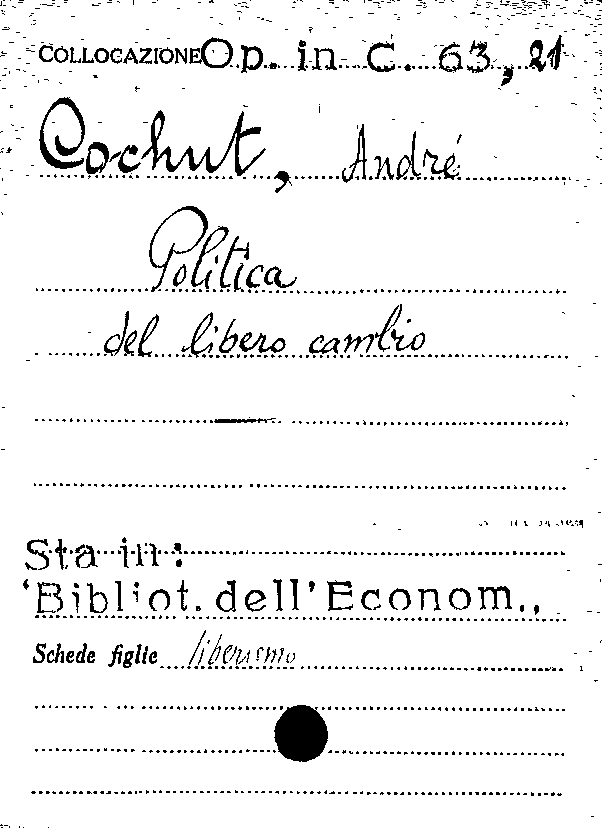 COLLOCAZIONE Op. in C. 63, 21
Cochut, André
Politica
del libero cambio
Sta in:
'Bibliot. dell' Econom.,
Schede figlie liberismo